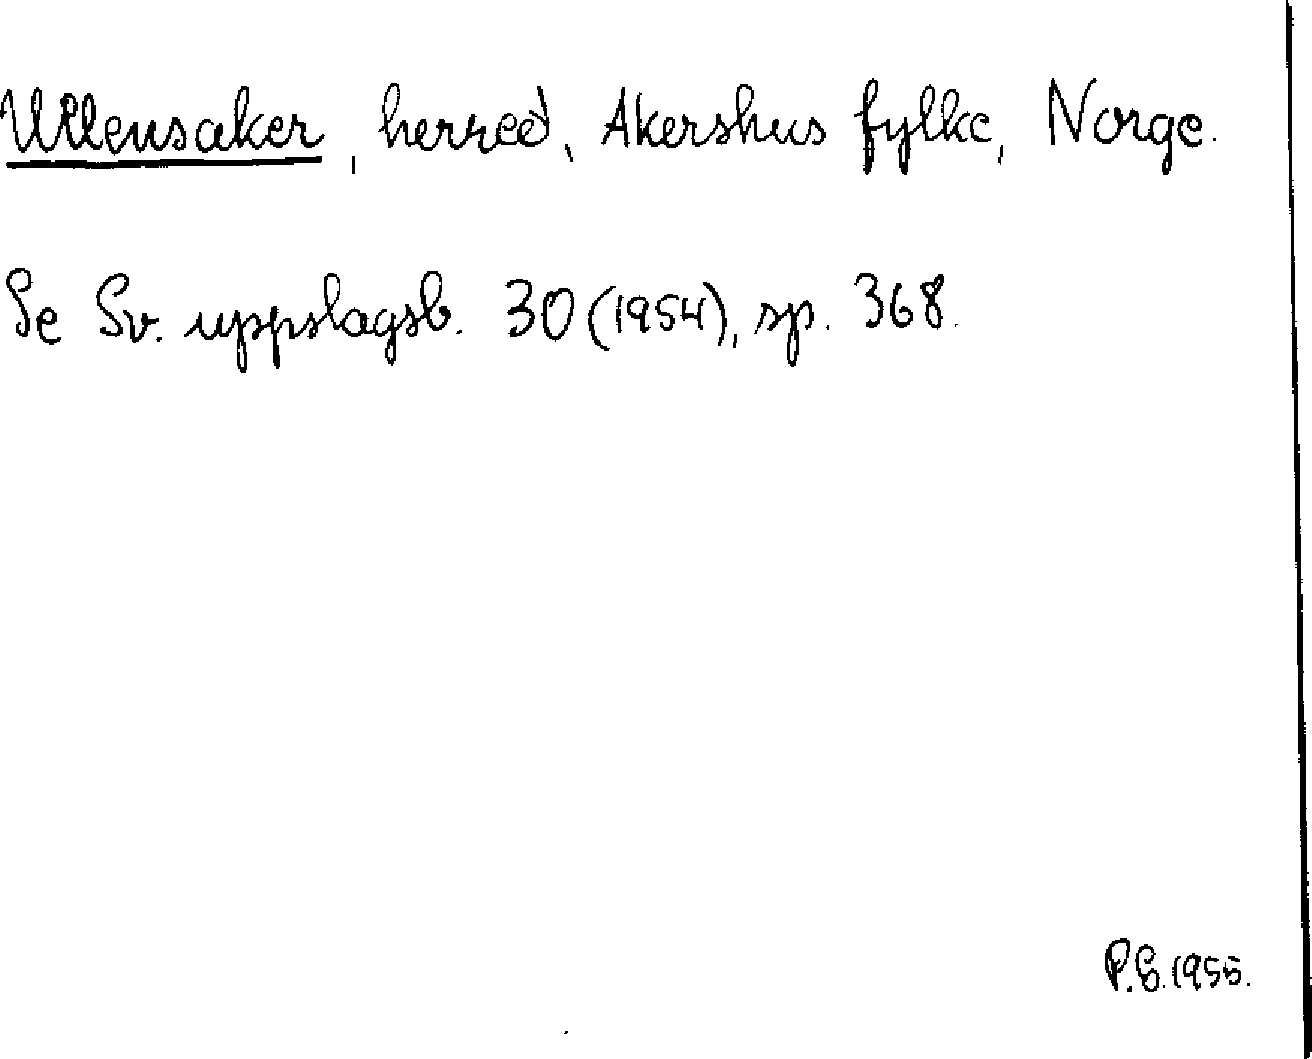 Ullensaker, herred, Akershus fylke, Norge.
Se Sv. uppslagsb. 30 (1954), sp. 368.
P.E. 1955.